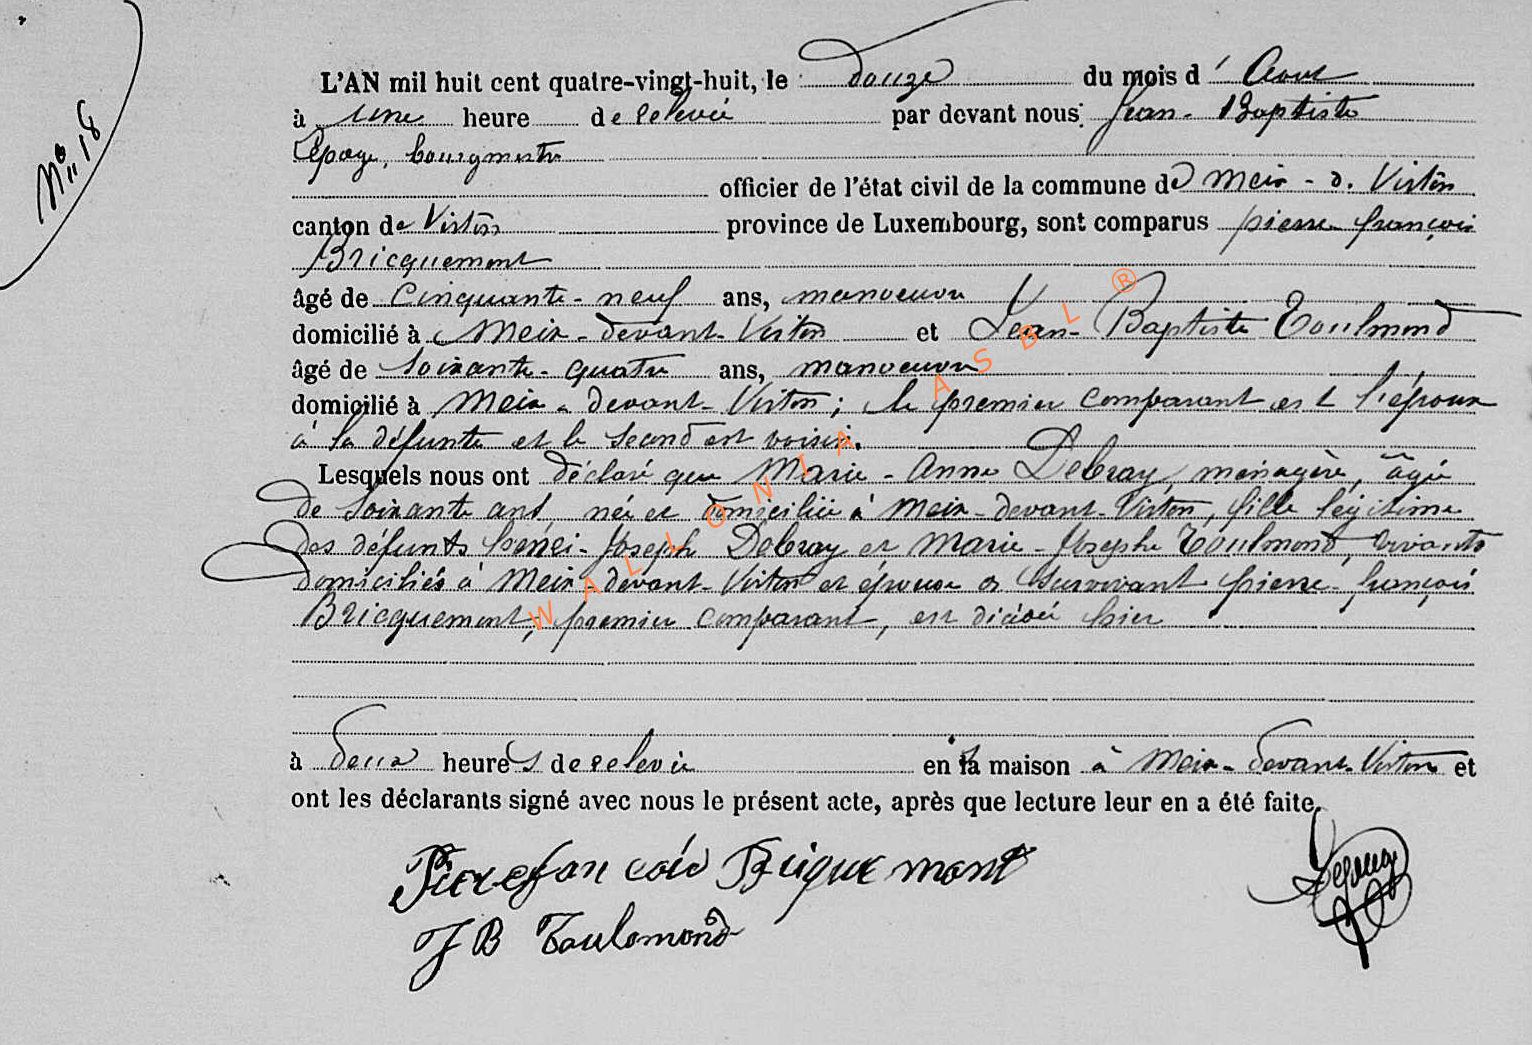 N° 18
L'AN mil huit cent quatre-vingt-huit, le douze du mois d'Aout
à une heure de relevée par devant nous: Jean-Baptiste
Lepage, bourgmestre
officier de l'état civil de la commune de Meix-d. Virton
canton de Virton province de Luxembourg, sont comparus pierre françois
Bricquemont
âgé de cinquante-neuf ans, manoeuvre
domicilié à Meix-devant-Virton et Jean-Baptiste Toulmond
âgé de soixante-quatre ans, manoeuvre
domicilié à Meix-devant-Virton; le premier comparant est l'époux
à la défunte et le second est voisin.
Lesquels nous ont déclaré que Marie-Anne Debray, ménagère, âgée
de soixante ans, née et domiciliée à Meix-devant-Virton, fille légitime
des défunts henri-Joseph Debray et Marie-Josephe Toulmond, vivants
domiciliés à Meix-devant-Virton et épouse en survivant pierre-françois
Bricquemont, premier comparant, est décédée hier
à deux heures de relevée en sa maison à Meix-devant-Virton et
ont les déclarants signé avec nous le présent acte, après que lecture leur en a été faite.
Pierre fran cois Briquemont
J B Toulomond
Lepage
WALLONIA ASBL ®